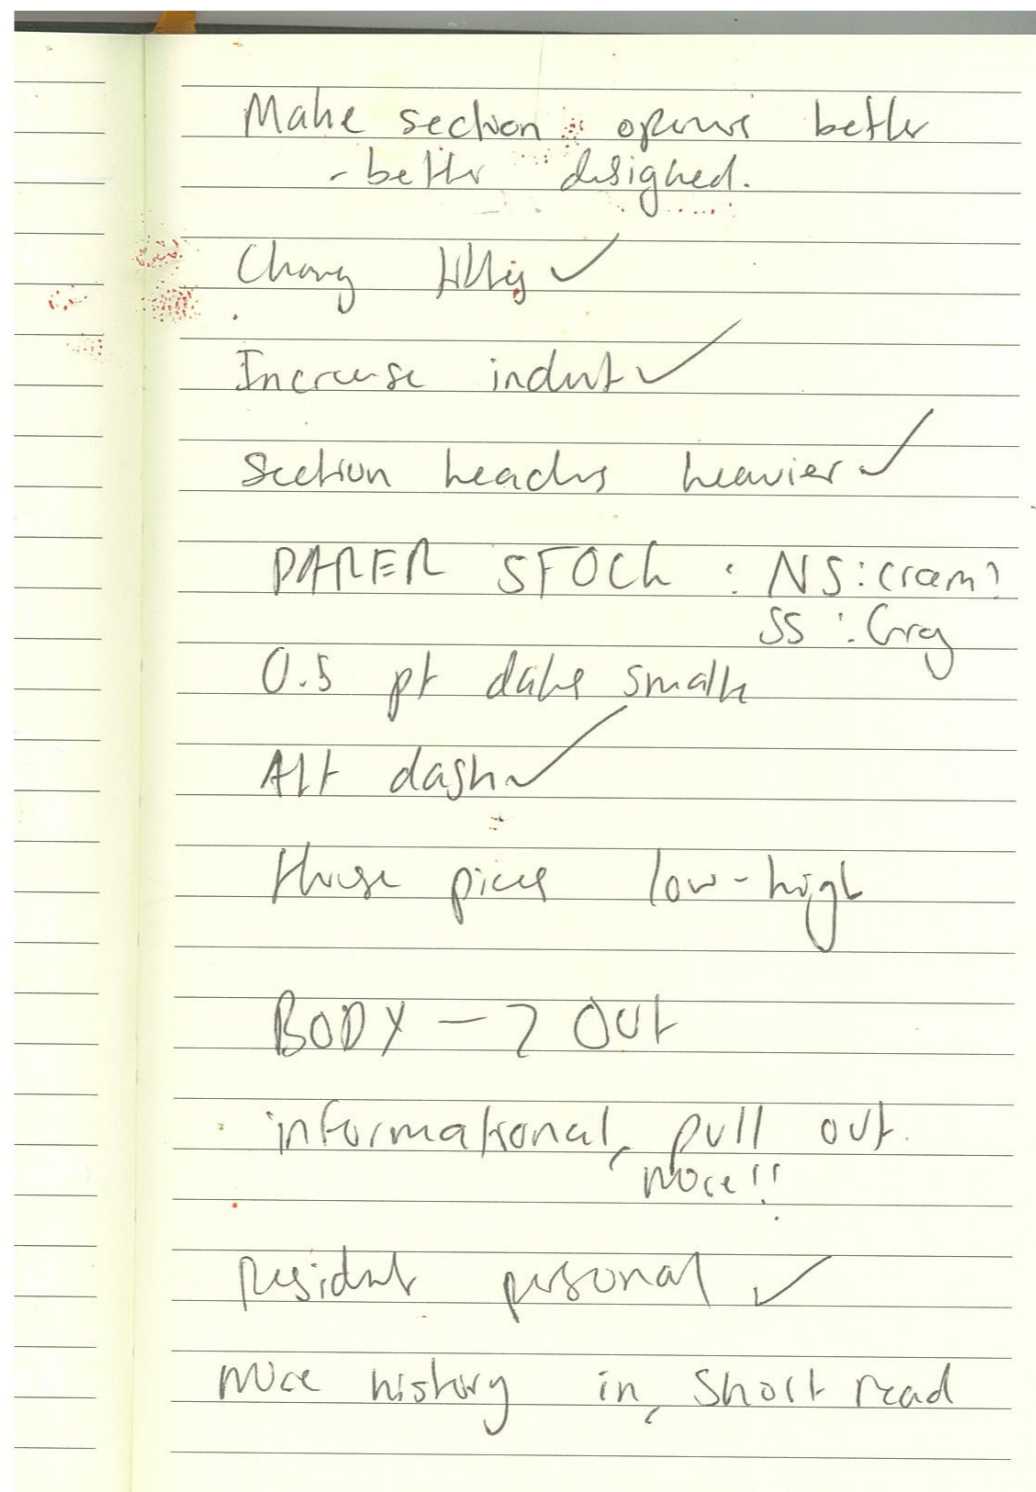 Make section openers better
- better designed.
Change ✓
Increase indent ✓
Section headers heavier ✓
PAPER STOCK : NS: cream?
SS : Grey
0.5 pt smaller
Alt dash ✓
House prices low - high
BODY -> OUT
informational, pull out.
more!!
Resident personal ✓
more history in, short read